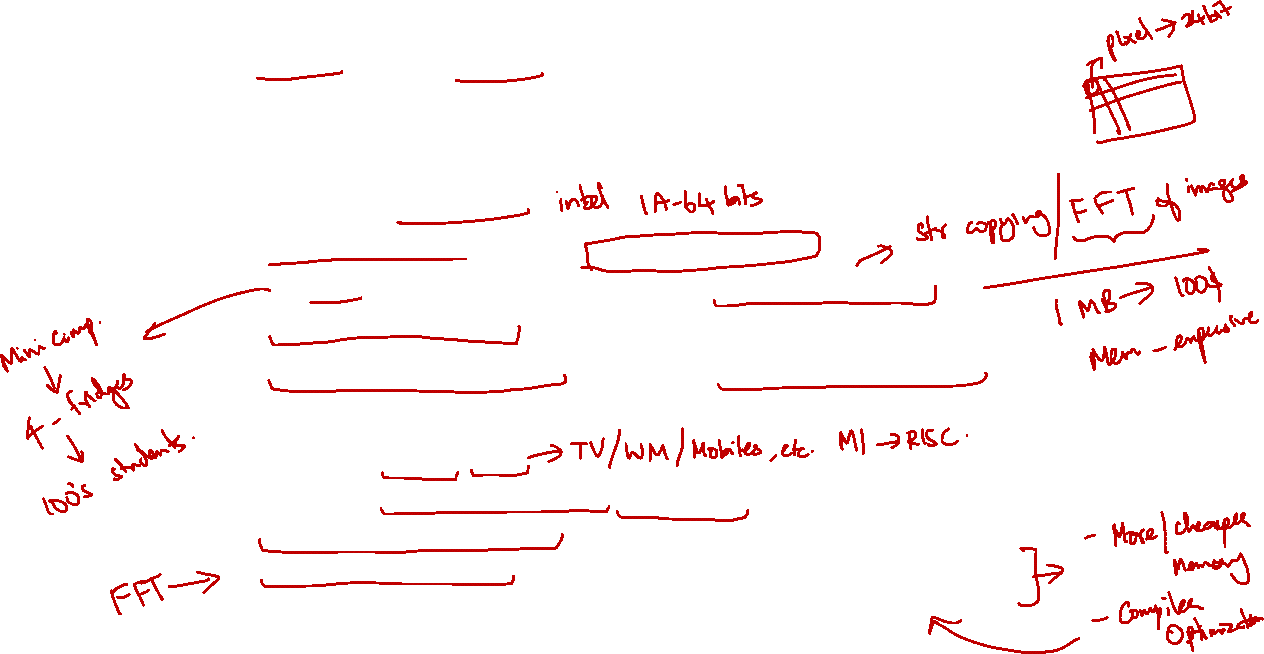 pixel → 24bit
intel IA-64 bits
str copying / FFT of images
1 MB → 100$
Mem - expensive
Mini Comp.
4 - fridges
100's students.
→ TV/WM/Mobiles, etc. M1 → RISC.
FFT →
- More/cheaper Memory
- Compiler Optimization